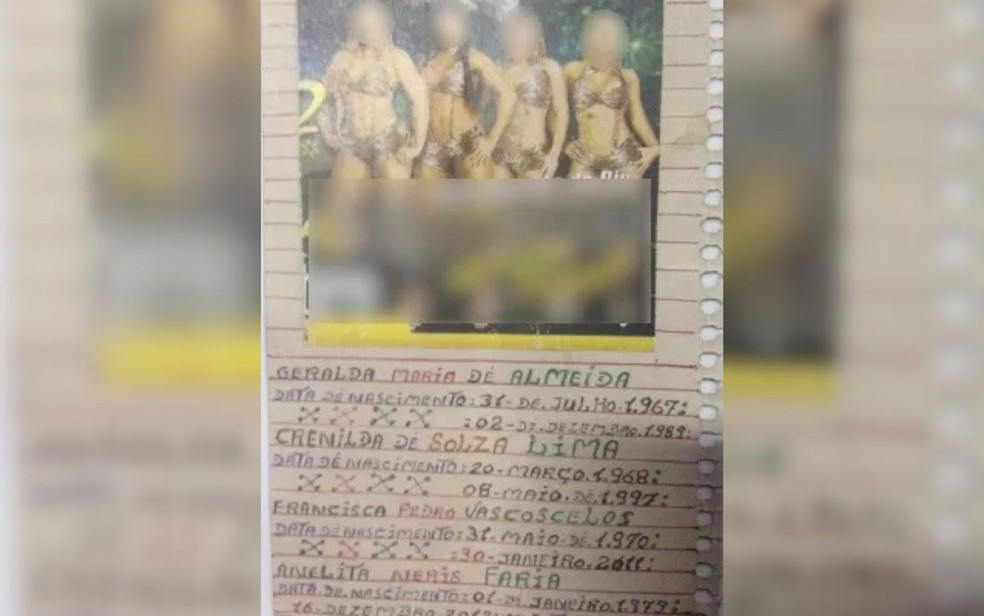 2
do Rio
GERALDA MARIA DE ALMEIDA
DATA DE NASCIMENTO: 31- DE. JULHO. 1.967:
:02- DE. DEZEMBRO. 1.989:
CRENILDA DE SOLZA LIMA
DATA DE NASCIMENTO: 20- MARÇO. 1.968:
08- MAIO. DE. 1.997:
FRANCISCA PEDRO VASCOSCELOS
DATA DE NASCIMENTO: 31- MAIO. DE. 1.970:
:30- JANEIRO. 2011:
ANELITA NERIS FARIA
DATA. DE. NASCIMENTO: 01- DE. JANEIRO. 1.979:
16- DEZEMBRO